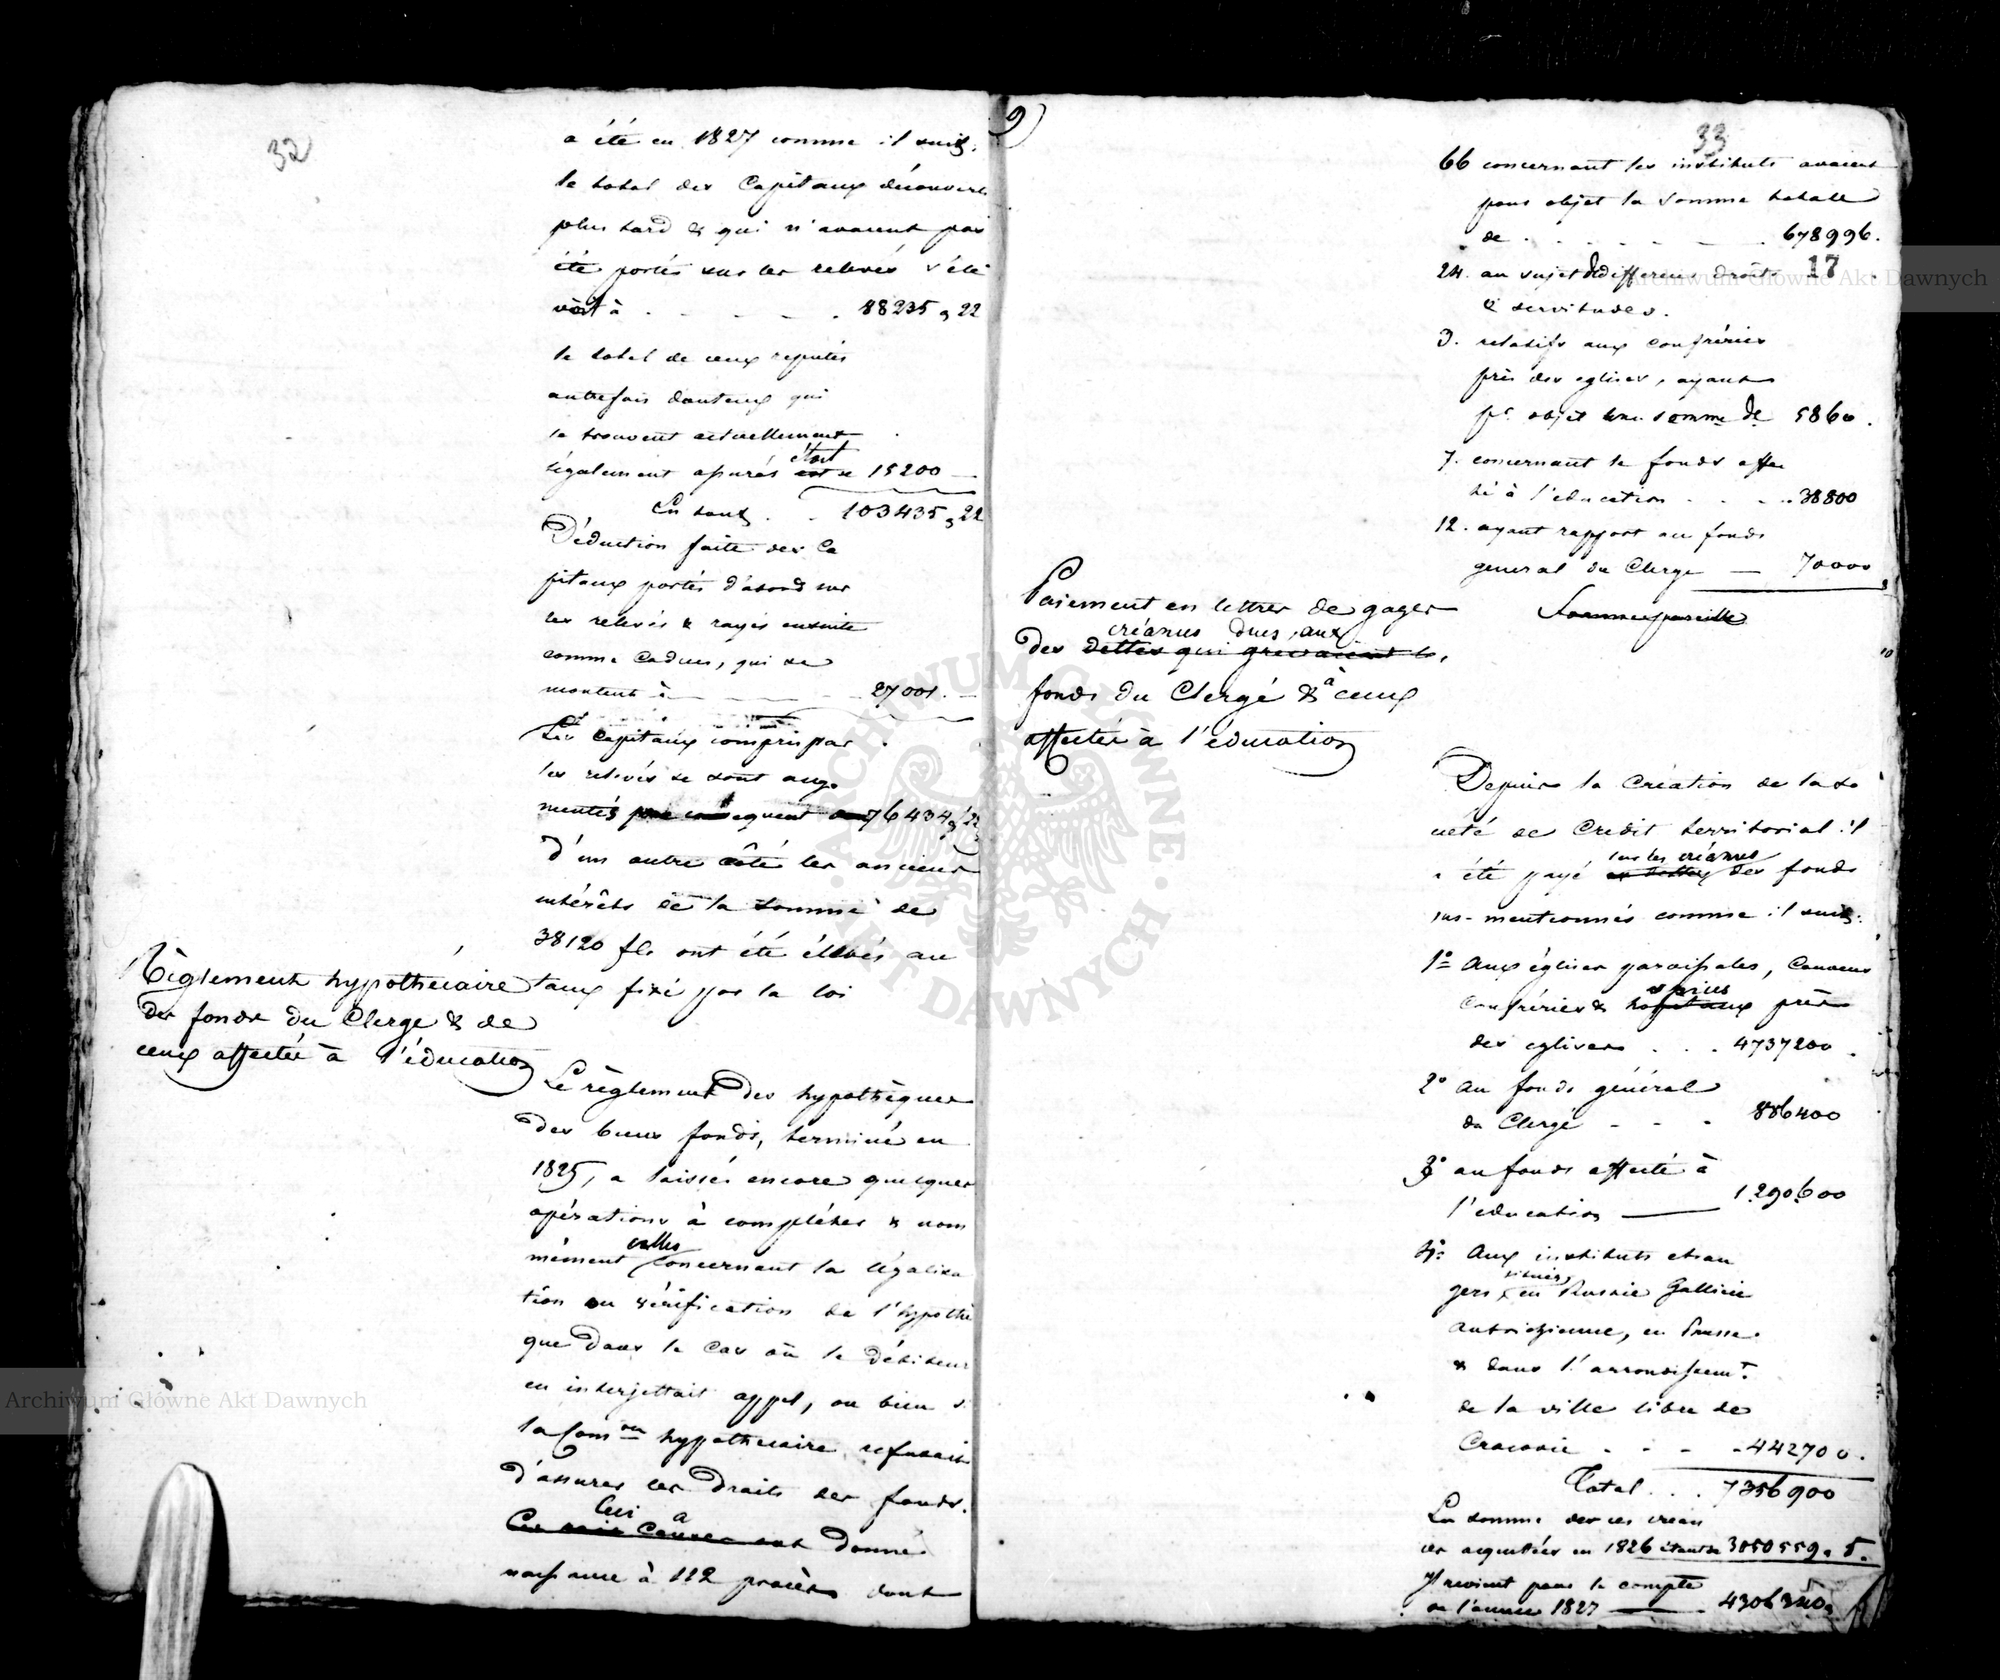 32
a été en 1827 comme il suit.
le total des Capitaux découverts
plus tard & qui n'avaient pas
été portés sur les relevés s'éle
vait à . . . . 88235, 22
le total de ceux reputés
autrefois douteux qui
se trouvent actuellement
légalement apurés était de 15200 —
En tout . . 103435, 22
Déduction faite des Ca
pitaux portés d'abord sur
les relevés & rayés ensuite
comme caducs, qui se
montent à — — — 27001. —
Les Capitaux compris par
les relevés se sont aug-
mentés par consequent de 76434, 22
D'un autre côté les anciens
intérêts de la somme de
38120 fls ont été élevés au
taux fixé par la loi
Règlement hypothécaire
des fonds du Clergé & de
ceux affectés à l'éducation
Le règlement des hypothèques
des biens fonds, terminé en
1825, a laissé encore quelques
opérations à compléter & nom
mément celles concernant la légalisa
tion ou vérification de l'hypothè
que dans le cas où le débiteur
en interjettait appel, ou bien si
la Comon hypothécaire refusait
d'assurer les droits des fonds.
Ceci a donné
naissance à 112 procès dont
9
33
66 concernant les instituts avaient
pour objet la somme totale
de . . . . . . 678996.
24. au sujet de differens droits
& servitudes.
17
3. relatifs aux confréries
près des eglises, ayant
pr. objet une somme de 5860.
7. concernant le fonds affec
té à l'éducation . . . 38800
12. ayant rapport au fonds
general du Clergé — 70000
Somme pareille
Paiement en lettres de gages
des créances dues aux
dettes qui grevaient les
fonds du Clergé & à ceux
affectés à l'éducation
Depuis la Création de la So
cieté de Credit territorial il
a été payé sur les créances des fonds
sus-mentionnés comme il suit.
1o Aux églises paroissiales, Couvens
Confréries & hospices près
des eglises . . . 4737200
2o au fonds général
du Clergé - - - 886400
3o au fonds affecté à
l'education — 1290600
4o Aux instituts etran
gers situés en Russie Gallicie
autrichienne, en Prusse
& dans l'arrondissemt
de la ville libre de
Cracovie - - - 442700.
Total . . . 7356900
La somme des ces crean
ces acquittées en 1826 étant de 3050559. 5.
Il revient pour le compte
de l'année 1827 — 4306340,
Archiwum Główne Akt Dawnych
Archiwum Główne Akt Dawnych
ARCHIWUM GŁÓWNE AKT DAWNYCH